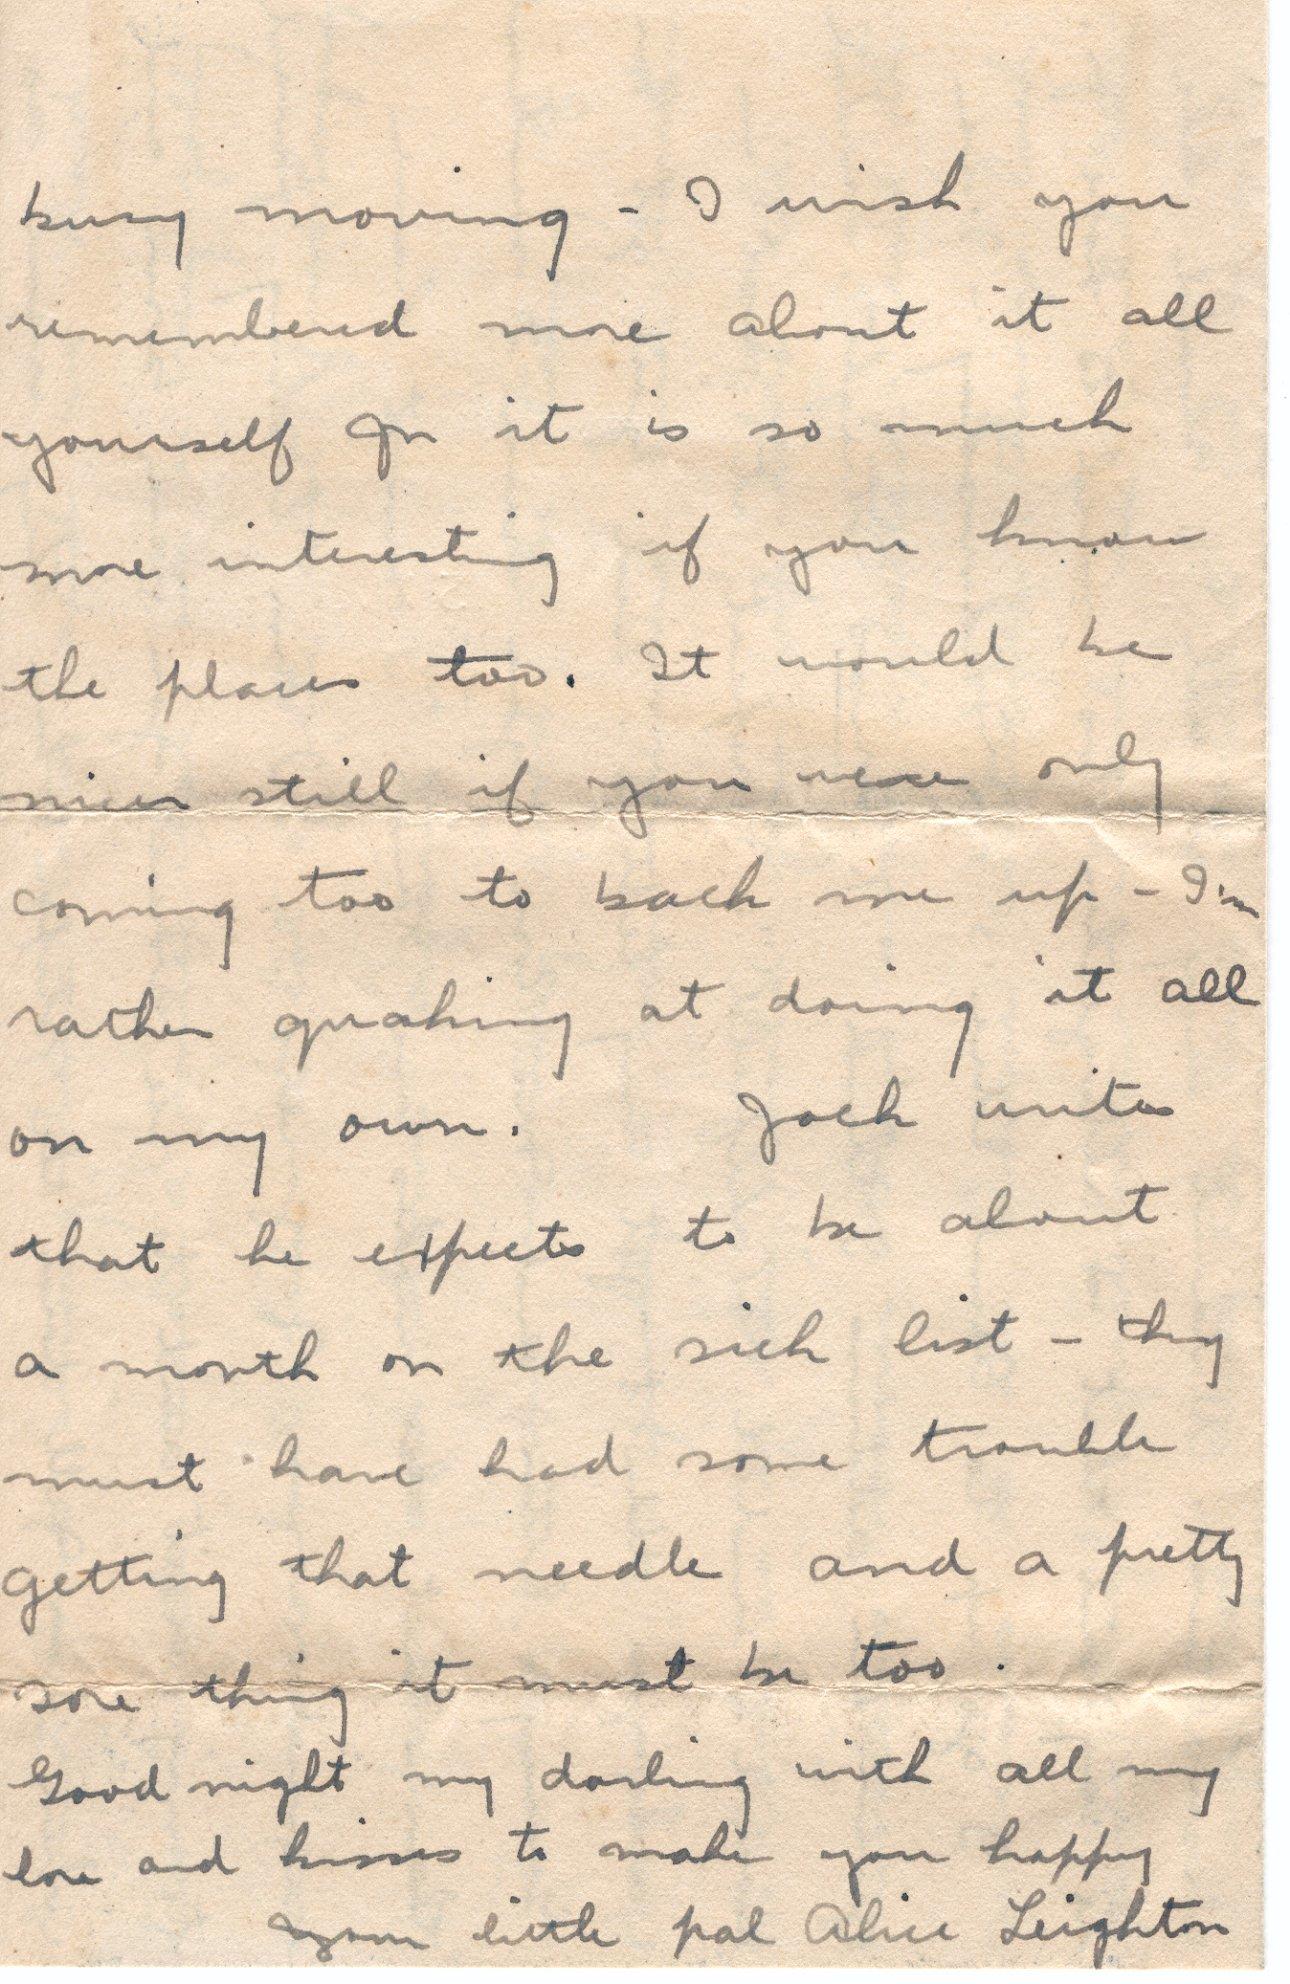 busy moving - I wish you
remembered more about it all
yourself for it is so much
more interesting if you know
the places too. It would be
nicer still if you were only
coming too to back me up - I'm
rather quaking at doing it all
on my own. Jack writes
that he expects to be about
a month on the sick list - they
must have had some trouble
getting that needle and a pretty
sore thing it must be too.
Good night my darling with all my
love and kisses to make you happy
Your little pal Alice Leighton